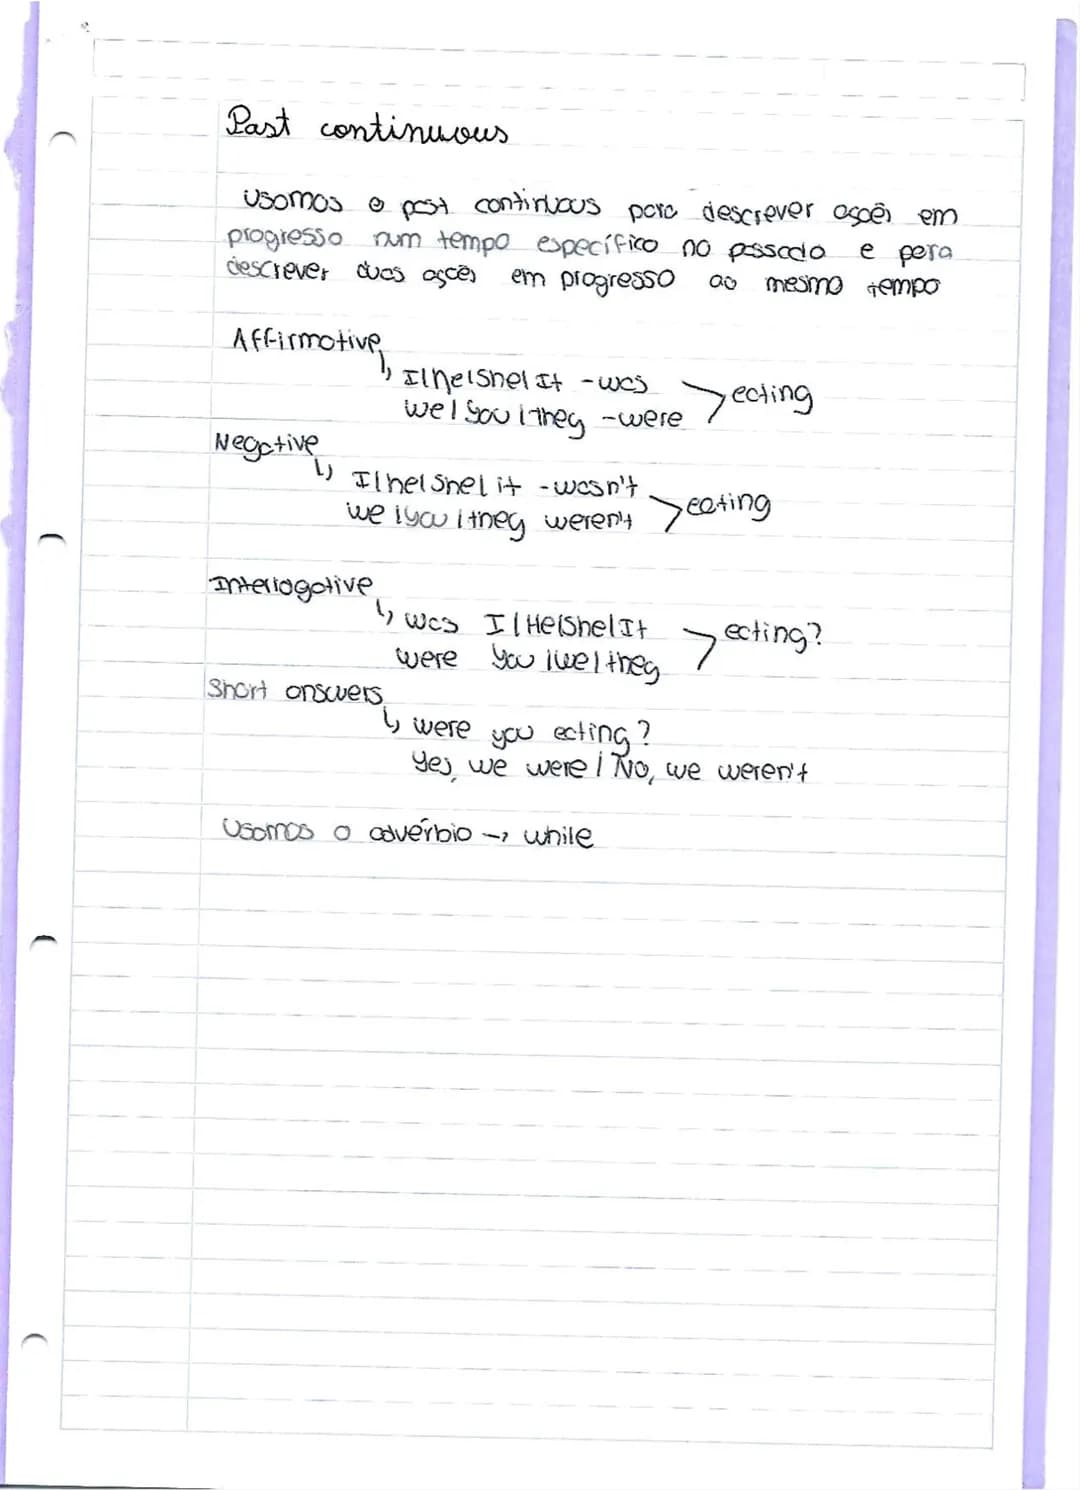 Past continuous
Usamos o past continuous para descrever ações em
progresso num tempo específico no passado e para
descrever duas ações em progresso ao mesmo tempo
Affirmative
↳ I/he/she/It - was > eating
we/you/they - were
Negative
↳ I/he/she/it - wasn't > eating
we/you/they weren't
Interrogative
↳ was I/He/she/It > eating?
were you/we/they
Short answers
↳ were you eating?
Yes, we were / No, we weren't
Usamos o advérbio → while